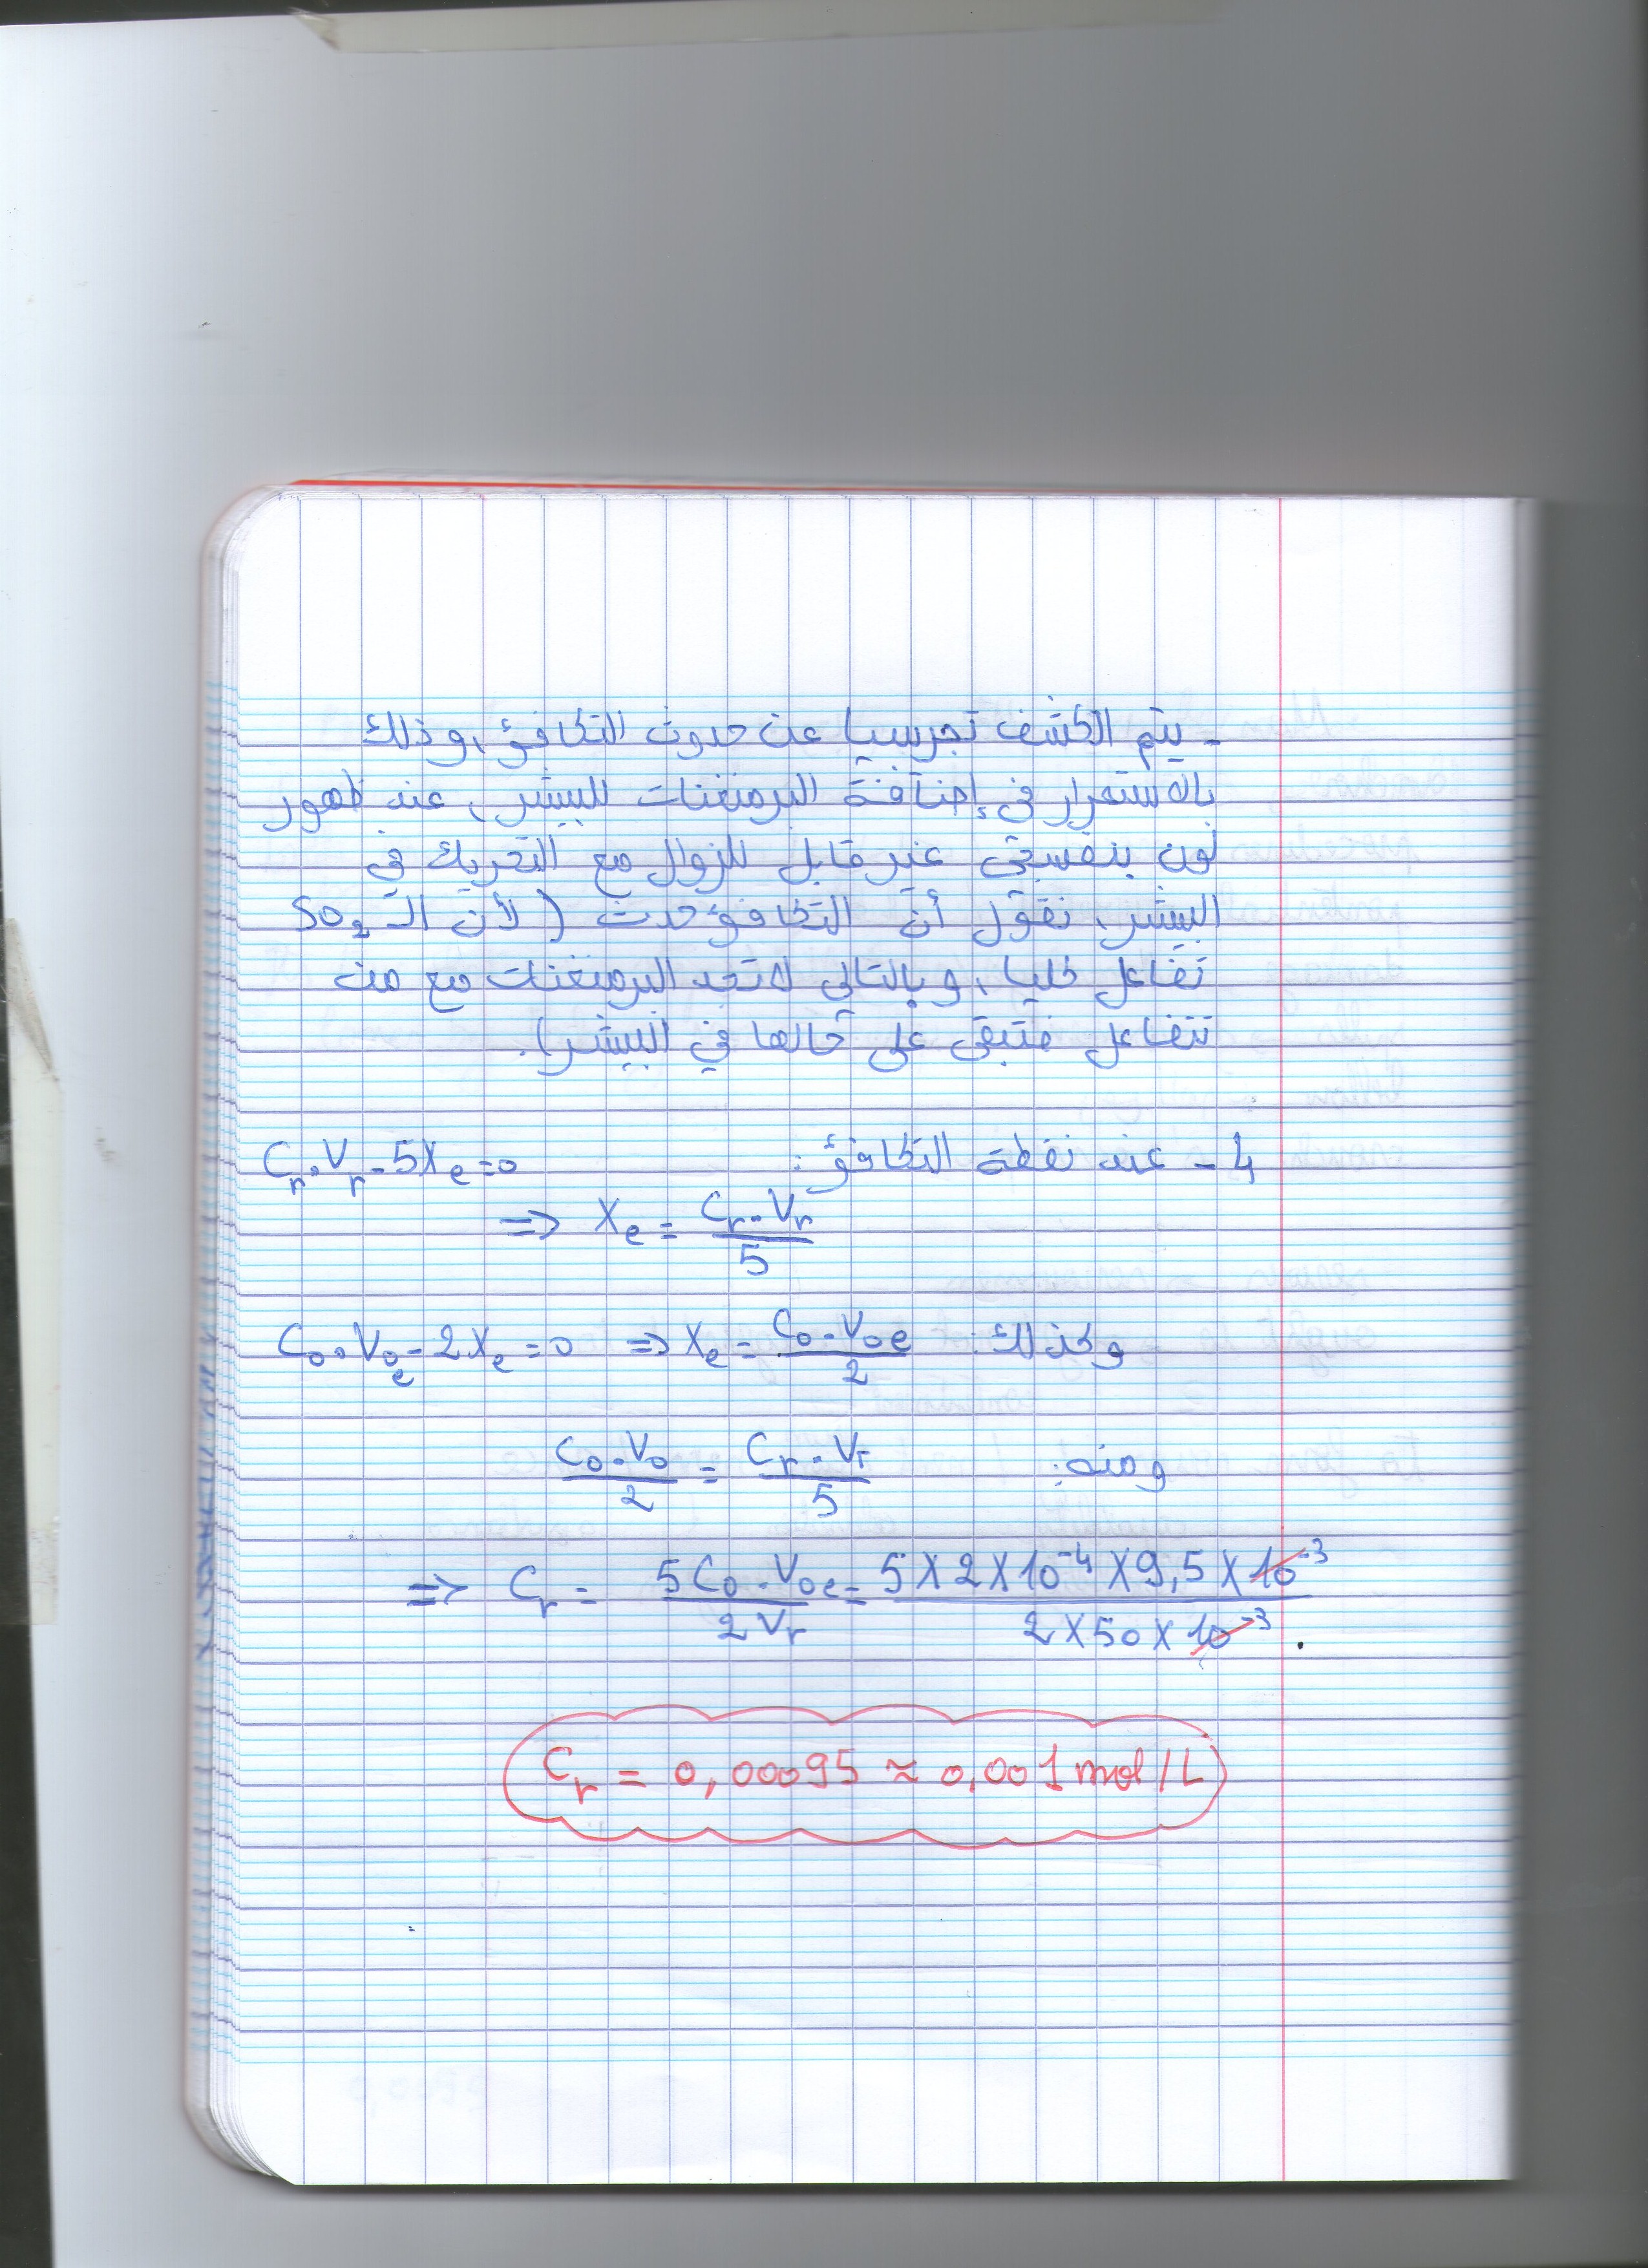 - يتم الكشف تجريبيا عن حدوث التكافؤ، وذلك
بالاستمرار في إضافة البرمنغنات للبيشر، عند ظهور
لون بنفسجي غير قابل للزوال مع التحريك في
البيشر، نقول أن التكافؤ حدث (لأن الـ SO₂
تفاعل كليا، وبالتالي لا تجد البرمنغنات مع من
تتفاعل فتبقى على حالها في البيشر).
4 - عند نقطة التكافؤ: Cr.Vr - 5Xe = 0
=> Xe = Cr.Vr / 5
وكذلك: C₀.V₀e - 2Xe = 0 => Xe = C₀.V₀e / 2
ومنه: C₀.V₀ / 2 = Cr.Vr / 5
=> Cr = 5C₀.V₀e / 2Vr = 5X2X10⁻⁴X9,5X10⁻³ / 2X50X10⁻³.
Cr = 0,00095 ≈ 0,001 mol/L